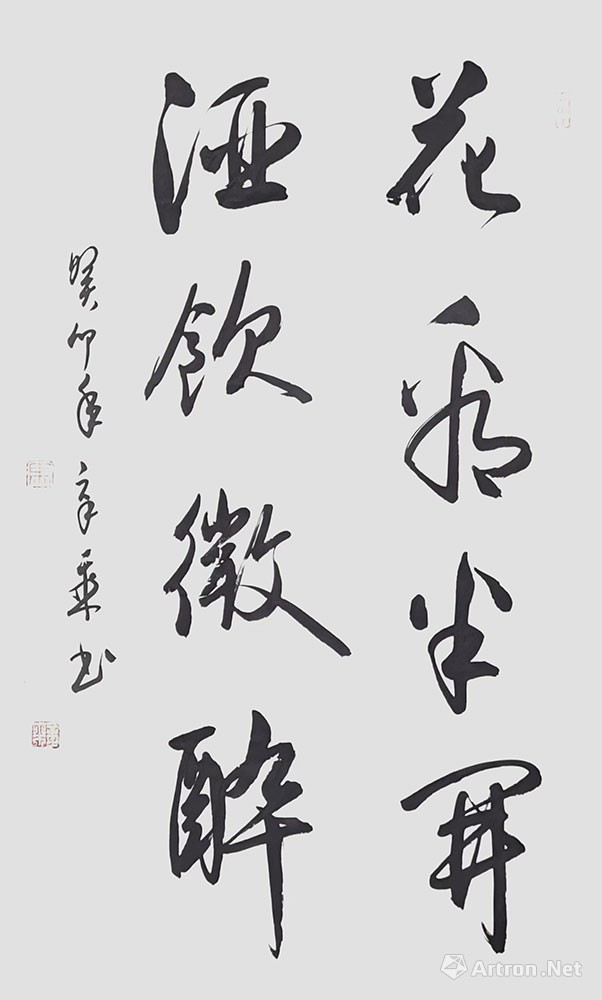 花看半開
酒飲微醉
癸卯年 书
Artron.Net